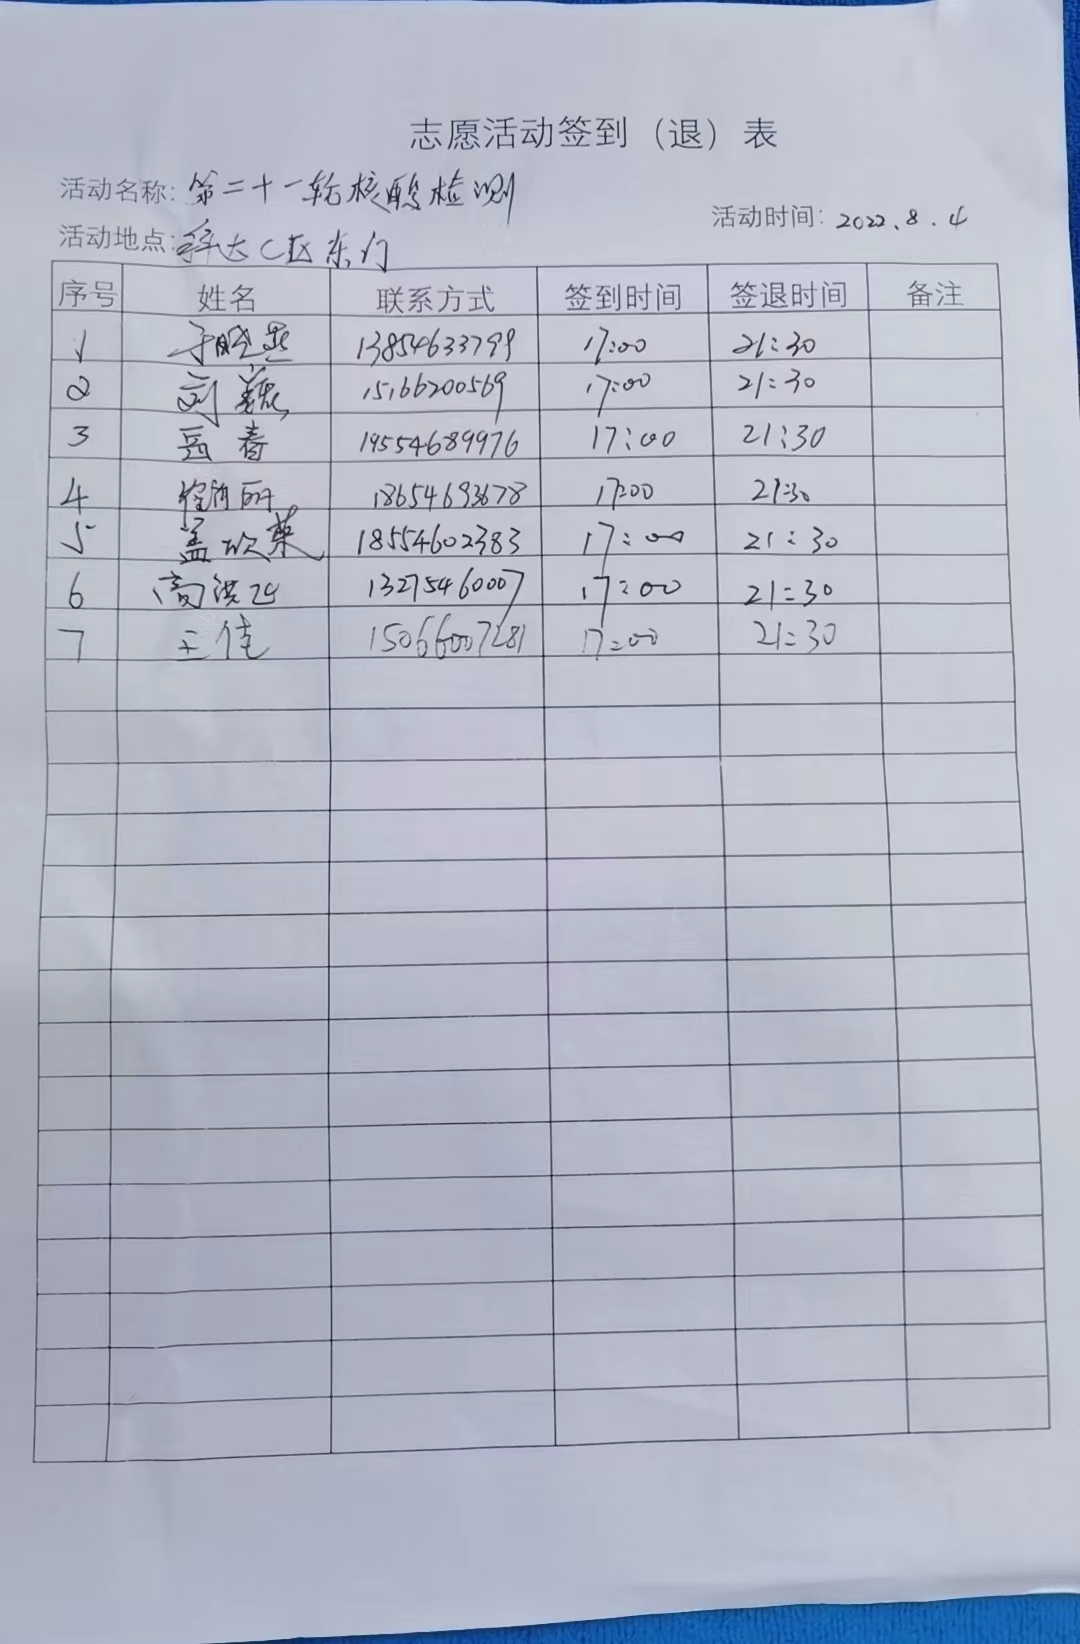 志愿活动签到（退）表
活动名称：第二十一轮核酸检测
活动时间：2022.8.4
活动地点：辛大C区东门
序号 姓名 联系方式 签到时间 签退时间 备注
1 于晓燕 13854633799 17:00 21:30
2 刘 15166200569 17:00 21:30
3 岳春 19554689976 17:00 21:30
4 18654693678 17:00 21:30
5 盖欣荣 18554602383 17:00 21:30
6 高洪 13275460007 17:00 21:30
7 王倩 15066007281 17:00 21:30